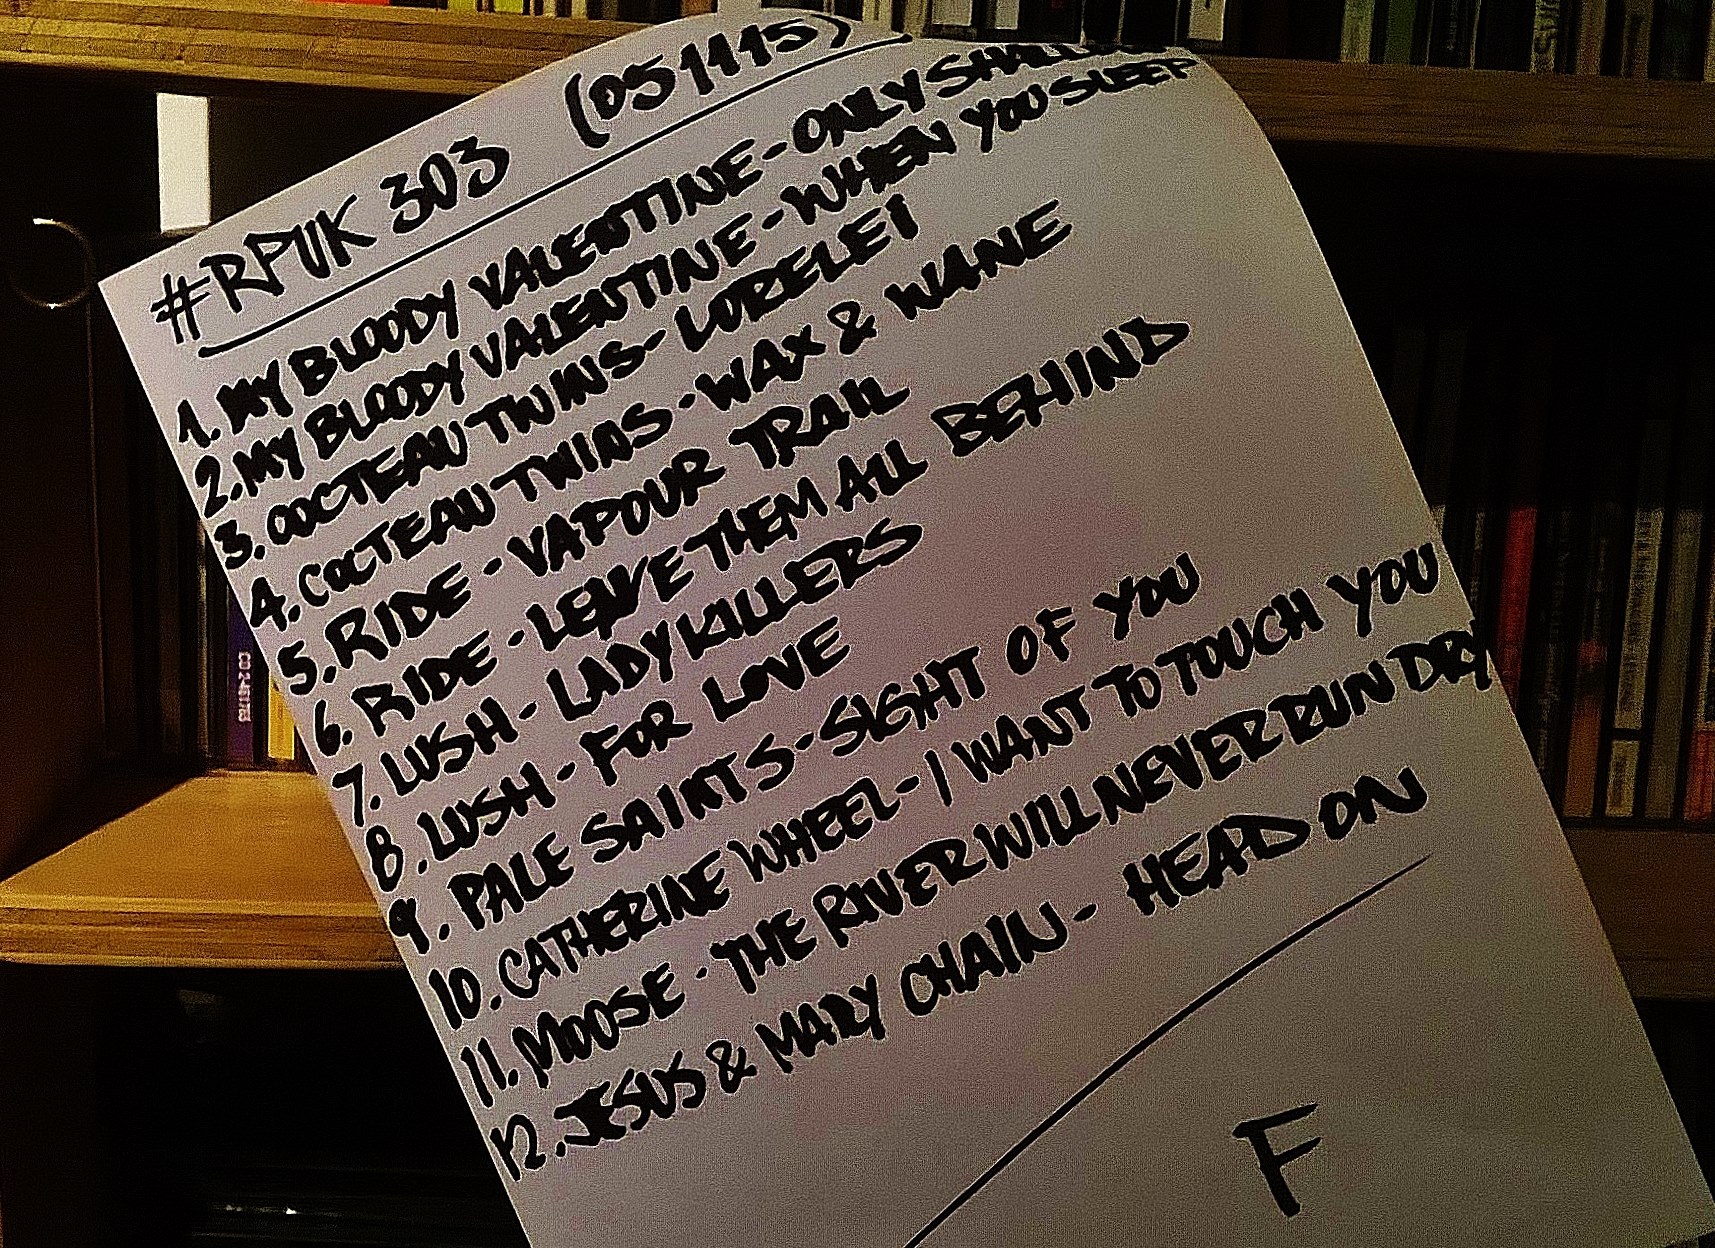 #RPUK 303 (051115)
1. MY BLOODY VALENTINE - ONLY SHALLOW
2. MY BLOODY VALENTINE - WHEN YOU SLEEP
3. COCTEAU TWINS - LORELEI
4. COCTEAU TWINS - WAX & WANE
5. RIDE - VAPOUR TRAIL
6. RIDE - LEAVE THEM ALL BEHIND
7. LUSH - LADYKILLERS
8. LUSH - FOR LOVE
9. PALE SAINTS - SIGHT OF YOU
10. CATHERINE WHEEL - I WANT TO TOUCH YOU
11. MOOSE - THE RIVER WILL NEVER RUN DRY
12. JESUS & MARY CHAIN - HEAD ON
F